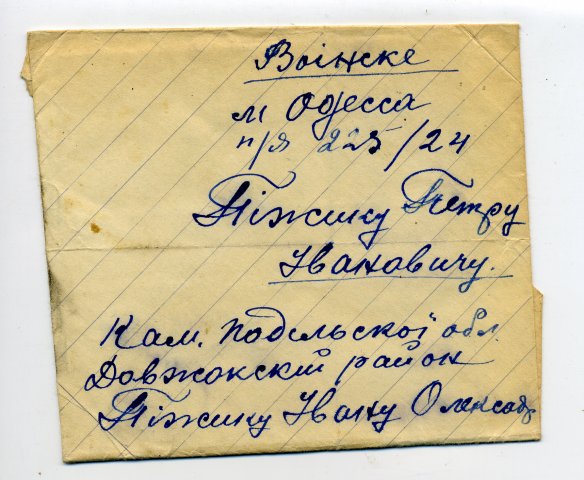 Воінске
м Одесса
п/я 225/24
Піжику Петру
Івановичу.
Кам. Подільскої обл.
Довжокский район
Піжику Івану Олександр